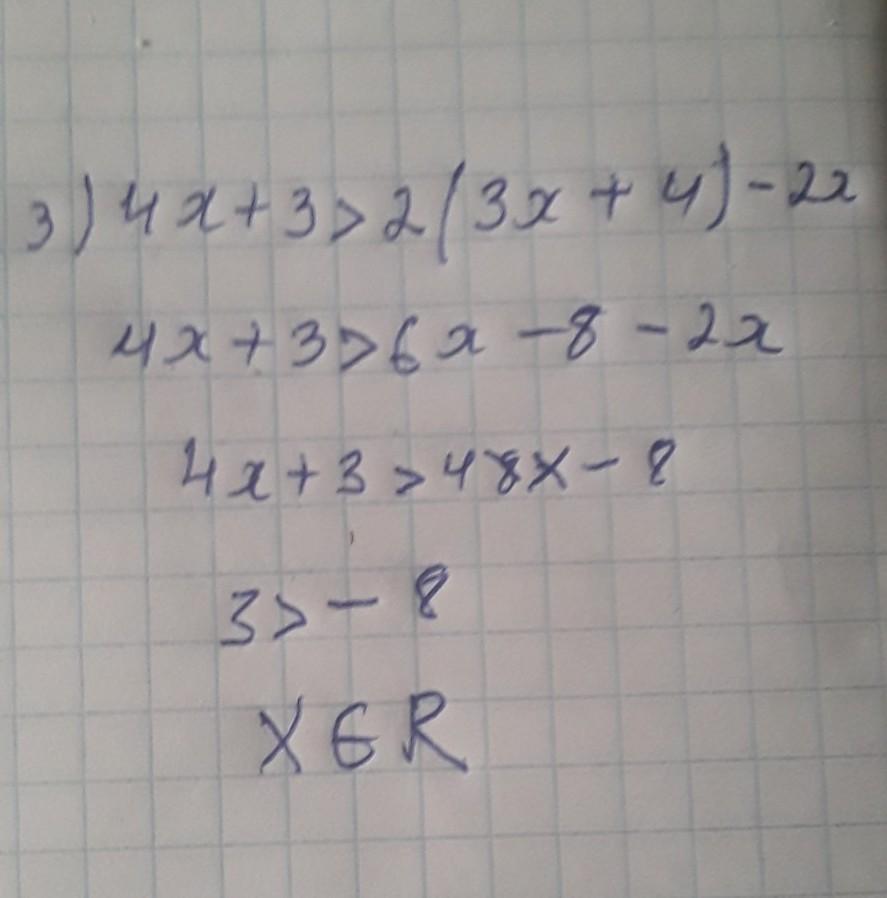 3) 4x + 3 > 2(3x + 4) - 2x
4x + 3 > 6x - 8 - 2x
4x + 3 > 48x - 8
3 > - 8
x ∈ R